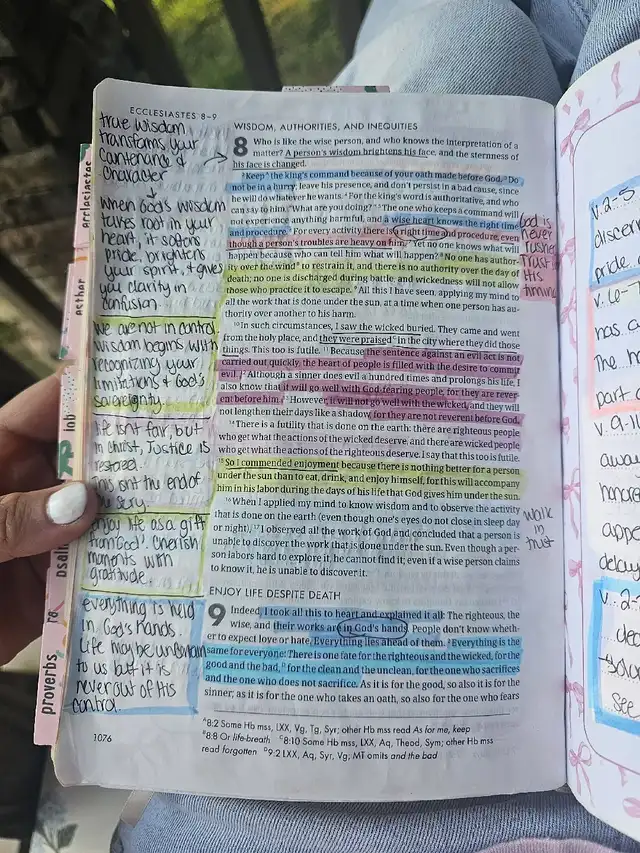 ECCLESIASTES 8–9
true wisdom
transforms your
countenance &
character
when God's wisdom
takes root in your
heart, it softens
pride, brightens
your spirit, & gives
you clarity in
confusion.
we are not in control
wisdom begins with
recognizing your
limitations & God's
sovereignty.
life isn't fair, but
in Christ, Justice is
restored.
this isnt the end of
the story.
enjoy life as a gift
from God. Cherish
moments with
gratitude.
everything is held
in God's hands.
Life may be uncertain
to us but it is
never out of His
control.
1076
WISDOM, AUTHORITIES, AND INEQUITIES
8 Who is like the wise person, and who knows the interpretation of a
matter? A person's wisdom brightens his face, and the sternness of
his face is changed.
2 Keep A the king's command because of your oath made before God. 3 Do
not be in a hurry; leave his presence, and don't persist in a bad cause, since
he will do whatever he wants. 4 For the king's word is authoritative, and who
can say to him, "What are you doing?" 5 The one who keeps a command will
not experience anything harmful, and a wise heart knows the right time
and procedure. 6 For every activity there is a right time and procedure, even
though a person's troubles are heavy on him. 7 Yet no one knows what will
happen because who can tell him what will happen? 8 No one has author-
ity over the wind B to restrain it, and there is no authority over the day of
death; no one is discharged during battle, and wickedness will not allow
those who practice it to escape. 9 All this I have seen, applying my mind to
all the work that is done under the sun, at a time when one person has au-
thority over another to his harm.
10 In such circumstances, I saw the wicked buried. They came and went
from the holy place, and they were praised C in the city where they did those
things. This too is futile. 11 Because the sentence against an evil act is not
carried out quickly, the heart of people is filled with the desire to commit
evil. 12 Although a sinner does evil a hundred times and prolongs his life, I
also know that it will go well with God-fearing people, for they are rever-
ent before him. 13 However, it will not go well with the wicked, and they will
not lengthen their days like a shadow, for they are not reverent before God.
14 There is a futility that is done on the earth: there are righteous people
who get what the actions of the wicked deserve, and there are wicked people
who get what the actions of the righteous deserve. I say that this too is futile.
15 So I commended enjoyment because there is nothing better for a person
under the sun than to eat, drink, and enjoy himself, for this will accompany
him in his labor during the days of his life that God gives him under the sun.
16 When I applied my mind to know wisdom and to observe the activity
that is done on the earth (even though one's eyes do not close in sleep day
or night), 17 I observed all the work of God and concluded that a person is
unable to discover the work that is done under the sun. Even though a per-
son labors hard to explore it, he cannot find it; even if a wise person claims
to know it, he is unable to discover it.
ENJOY LIFE DESPITE DEATH
9 Indeed, I took all this to heart and explained it all: The righteous, the
wise, and their works are in God's hands. People don't know wheth-
er to expect love or hate. Everything lies ahead of them. 2 Everything is the
same for everyone: There is one fate for the righteous and the wicked, for the
good and the bad, D for the clean and the unclean, for the one who sacrifices
and the one who does not sacrifice. As it is for the good, so also it is for the
sinner; as it is for the one who takes an oath, so also for the one who fears
A 8:2 Some Hb mss, LXX, Vg, Tg, Syr; other Hb mss read As for me, keep
B 8:8 Or life-breath C 8:10 Some Hb mss, LXX, Aq, Theod, Sym; other Hb mss
read forgotten D 9:2 LXX, Aq, Syr, Vg; MT omits and the bad
God is
never
rushed
Trust
His
timing
walk
in
trust
ecclesiastes
esther
job
psalms
proverbs
v. 2-5
discern
pride
v. 6-7
has a
The h
part o
v. 9-11
away
happen
appe
delay
v. 2-
dec
see